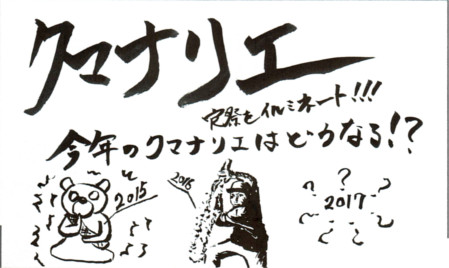 クマナリエ
宅祭をイルミネート!!!
今年のクマナリエはどうなる!?
2015
2016
2017
?
?
?
?
?
?
?